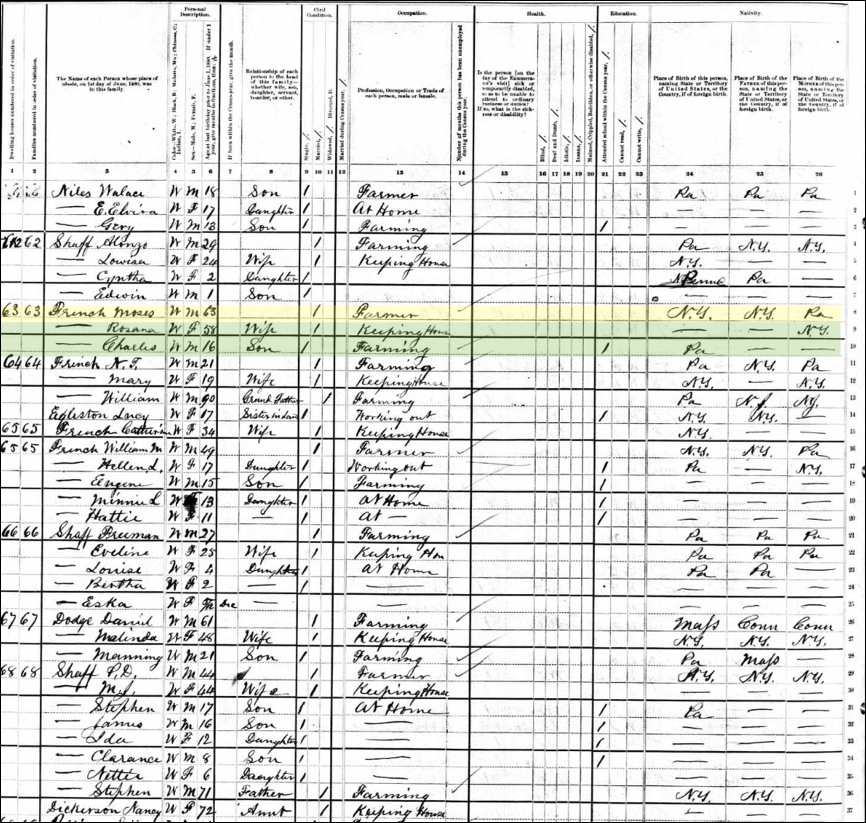 Personal Description.
Civil Condition.
Occupation.
Health.
Education.
Nativity.
Dwelling houses numbered in order of visitation.
Families numbered in order of visitation.
The Name of each Person whose place of abode, on 1st day of June, 1880, was in this family.
Relationship of each person to the head of this family—whether wife, son, daughter, servant, boarder, or other.
Single,
Married,
Widowed,
Divorced, D.
Married during Census year,
Profession, Occupation or Trade of each person, male or female.
Number of months this person has been unemployed during the Census year.
Blind,
Deaf and Dumb,
Idiotic,
Insane,
Attended school within the Census year,
Cannot read,
Cannot write,
Place of Birth of this person, naming State or Territory of United States, or the Country, if of foreign birth.
Place of Birth of the Father of this person, naming the State or Territory of United States, or the Country, if of foreign birth.
Place of Birth of the Mother of this person, naming the State or Territory of United States, or the Country, if of foreign birth.
1 2 3 4 5 6 7 8 9 10 11 12 13 14 15 16 17 18 19 20 21 22 23 24 25 26
Niles Walace W M 18 Son / Farmer Pa Pa Pa 1
— E. Elvira W F 17 Daughter / At Home — — —
— Gery W M 13 Son / Farming / — — — 3
62 62 Shaff Alonzo W M 29 / Farming Pa N.Y. N.Y. 4
— Lowisa W F 24 Wife / Keeping House N.Y. — — 5
— Cyntha W F 2 Daughter / Penna Pa — 6
— Edwin W M 1 Son / — — — 7
63 63 French Moses W M 63 / Farmer N.Y. N.Y. Pa 8
— Rosana W F 58 Wife / Keeping House — — N.Y. 9
— Charles W M 16 Son / Farming / Pa — — 10
64 64 French N.T. W M 21 / Farming Pa N.Y. Pa 11
— Mary W F 19 Wife / Keeping House N.Y. — N.Y. 12
— William W M 90 Grand Father / Farming Pa N.J. N.J. 13
Egleston Lucy W F 17 Sister in Law / Working out / N.Y. N.Y. — 14
65 65 French Catherine W F 34 Wife / Keeping House N.Y. — — 15
65 65 French William M W M 49 / Farmer N.Y. N.Y. Pa 16
— Hellen L. W F 17 Daughter / Working out / Pa — N.Y. 17
— Eugene W M 15 Son / Farming / — — — 18
— Minnie L W F 13 Daughter / At Home / — — — 19
— Hattie W F 11 — / At — / — — — 20
66 66 Shaff Freeman W M 27 / Farming Pa Pa Pa 21
— Eveline W F 25 Wife / Keeping Hou Pa Pa Pa 22
— Louise W F 4 Daughter / At Home Pa Pa — 23
— Bertha W F 2 — / — — — 24
— Eska W F Dec — — — — — 25
67 67 Dodge Daniel W M 61 / Farming Mass Conn Conn 26
— Malinda W F 48 Wife / Keeping House N.Y. N.Y. N.Y. 27
— Manning W M 21 Son / Farming Pa Mass — 28
68 68 Shaff P.D. W M 44 / Farmer N.Y. N.Y. N.Y. 29
— W F 44 Wife / Keeping House — — — 30
— Stephen W M 17 Son / At Home / Pa — — 31
— James W M 16 Son / — / — — — 32
— Ida W F 12 Daughter / — / — — — 33
— Clarance W M 8 Son / — / — — — 34
— Nettie W F 6 Daughter / — — — — 35
— Stephen W M 71 Father / Farming N.Y. N.Y. N.Y. 36
Dickerson Nancy W F 72 Aunt / Keeping House — — — 37